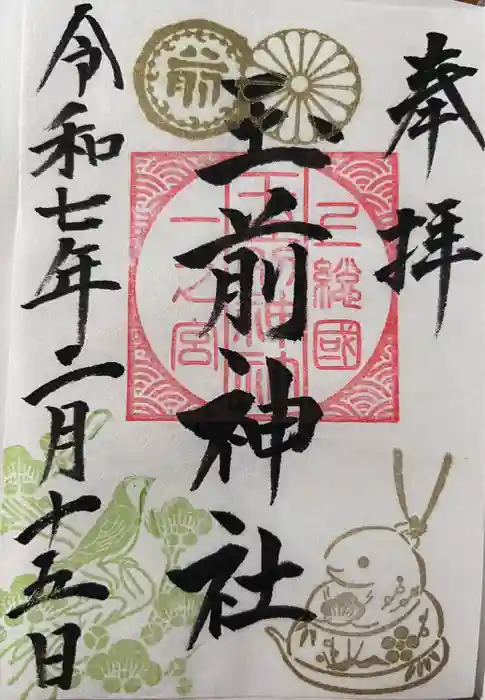 奉拝
上総國
玉前神社
一之宮
玉前神社
令和七年二月十五日
前